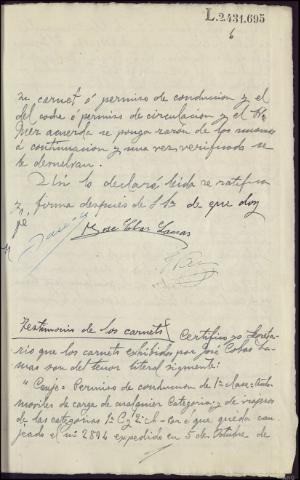 L.2.431.695
6
su carnet ó permiso de conducion y el
del coche ó permiso de circulacion y el Sr.
Juez acuerda se ponga razón de los mismos
á continuacion y una vez verificado se
le devuelvan.
Asi lo declaró leida se ratifica
y firma después de S. Sª de que doy
fé
José Cobas Lamas
Testimonio de los carnets Certifico yo Secreta-
rio que los carnets exhibidos por José Cobas La-
mas son del tenor literal siguiente:
" Permiso de conducion de 1ª clase Auto-
moviles de carga de cualquier Categoria y de viajeros
de las categorias 1ª C y 2ª que queda can-
jeado el nº 2894 expedido en 5 de Octubre de